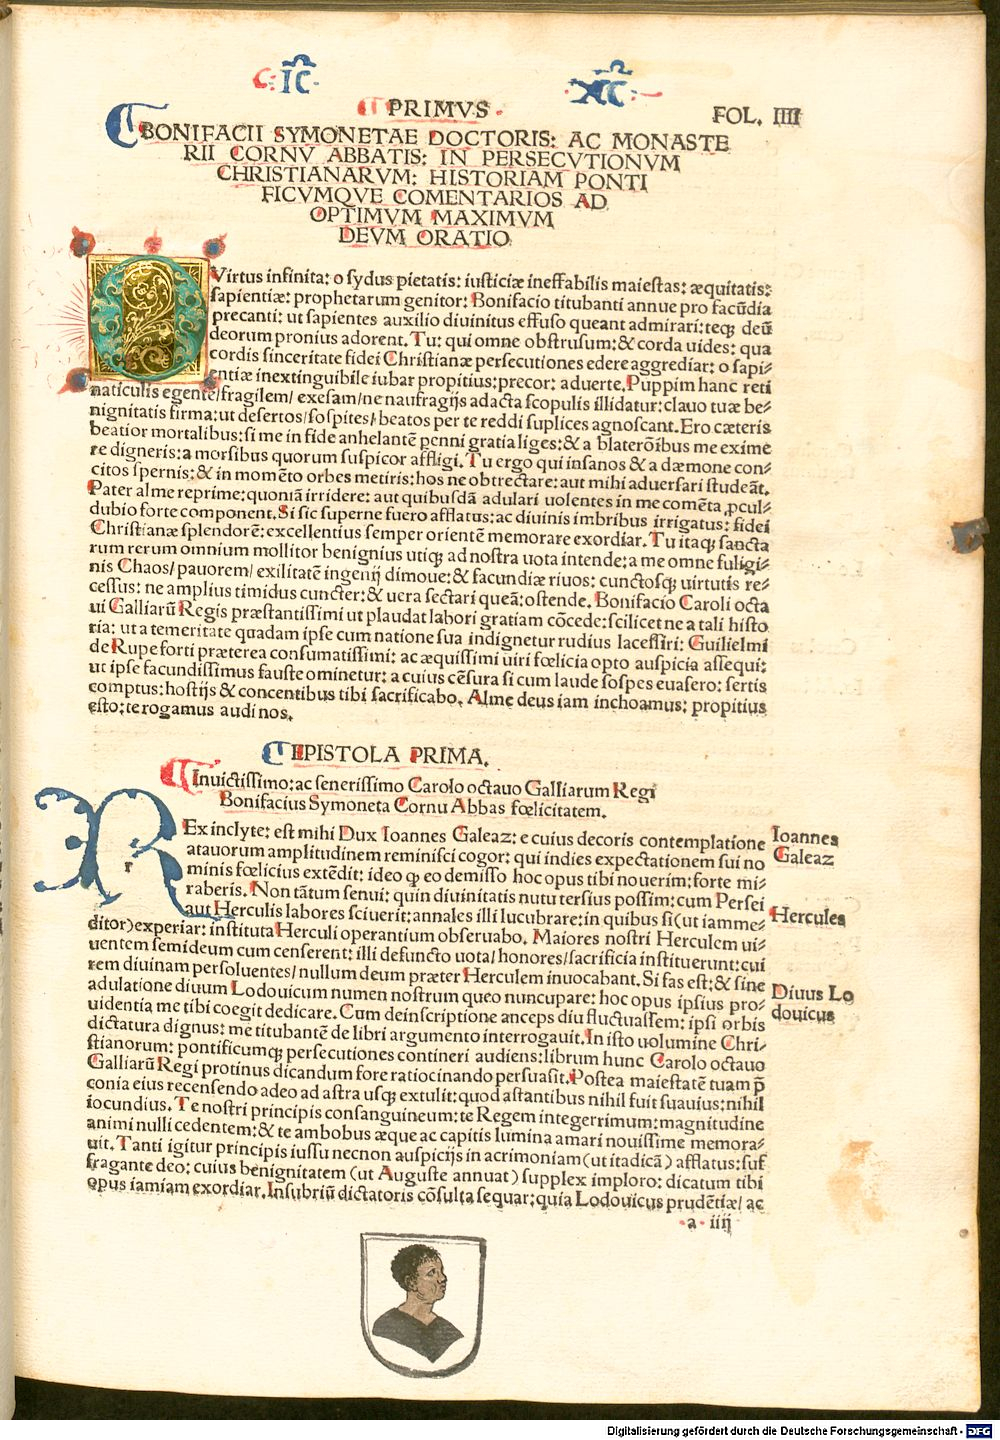 IC XC
PRIMVS. FOL. IIII
BONIFACII SYMONETAE DOCTORIS: AC MONASTE
RII CORNV ABBATIS: IN PERSECVTIONVM
CHRISTIANARVM: HISTORIAM PONTI
FICVMQVE COMENTARIOS AD
OPTIMVM MAXIMVM
DEVM ORATIO
O Virtus infinita: o sydus pietatis: iusticiæ ineffabilis maiestas: æquitatis:
sapientiæ: prophetarum genitor: Bonifacio titubanti annue pro facūdia
precanti: ut sapientes auxilio diuinitus effuso queant admirari: teqꝫ deū
deorum pronius adorent. Tu: qui omne obstrusum: & corda uides: qua
cordis sinceritate fidei Christianæ persecutiones edere aggrediar: o sapi-
entiæ inextinguibile iubar propitius: precor: aduerte. Puppim hanc reti
naticulis egente/fragilem/exesam/ne naufragijs adacta scopulis illidatur: clauo tuæ be-
nignitatis firma: ut desertos/sospites/beatos per te reddi suplices agnoscant. Ero cæteris
beatior mortalibus: si me in fide anhelantē penni gratia liges: & a blaterōibus me exime
re digneris: a morsibus quorum suspicor affligi. Tu ergo qui insanos & a dæmone con-
citos spernis: & in momēto orbes metiris: hos ne obtrectare: aut mihi aduersari studeāt.
Pater alme reprime: quoniā irridere: aut quibusdā adulari uolentes in me comēta ꝓcul-
dubio forte component. Si sic superne fuero afflatus: ac diuinis imbribus irrigatus: fidei
Christianæ splendorē: excellentius semper orientē memorare exordiar. Tu itaqꝫ sancta
rum rerum omnium mollitor benignius utiqꝫ ad nostra uota intende: a me omne fuligi-
nis Chaos/pauorem/exilitatē ingenij dimoue: & facundiæ riuos: cunctosqꝫ uirtutis re-
cessus: ne amplius timidus cuncter: & uera sectari queā: ostende. Bonifacio Caroli octa
ui Galliarū Regis præstantissimi ut plaudat labori gratiam cōcede: scilicet ne a tali histo
ria: ut a temeritate quadam ipse cum natione sua indignetur rudius lacessiri: Guilielmi
de Rupeforti præterea consumatissimi: ac æquissimi uiri fœlicia opto auspicia assequi:
ut ipse facundissimus fauste ominetur: a cuius cēsura si cum laude sospes euasero: sertis
comptus: hostijs & concentibus tibi sacrificabo. Alme deus iam inchoamus: propitius
esto: te rogamus audi nos.
EPISTOLA PRIMA.
Inuictissimo: ac senerissimo Carolo octauo Galliarum Regi
Bonifacius Symoneta Cornu Abbas fœlicitatem.
r
REx inclyte: est mihi Dux Ioannes Galeaz: e cuius decoris contemplatione
atauorum amplitudinem reminisci cogor: qui indies expectationem sui no
minis fœlicius extēdit: ideo qꝫ eo demisso hoc opus tibi nouerim: forte mi-
raberis. Non tātum senui: quin diuinitatis nutu tersius possim: cum Persei
aut Herculis labores sciuerit: annales illi lucubrare: in quibus si (ut iamme-
ditor) experiar: instituta Herculi operantium obseruabo. Maiores nostri Herculem ui-
uentem semideum cum censerent: illi defuncto uota/honores/sacrificia instituerunt: cui
rem diuinam persoluentes/nullum deum præter Herculem inuocabant. Si fas est: & sine
adulatione diuum Lodouicum numen nostrum queo nuncupare: hoc opus ipsius pro-
uidentia me tibi coegit dedicare. Cum deinscriptione anceps diu fluctuassem: ipsi orbis
dictatura dignus: me titubantē de libri argumento interrogauit. In isto uolumine Chri-
stianorum: pontificumqꝫ persecutiones contineri audiens: librum hunc Carolo octauo
Galliarū Regi protinus dicandum fore ratiocinando persuasit. Postea maiestatē tuam p̄
conia eius recensendo adeo ad astra usqꝫ extulit: quod astantibus nihil fuit suauius: nihil
iocundius. Te nostri principis consanguineum: te Regem integerrimum: magnitudine
animi nulli cedentem: & te ambobus æque ac capitis lumina amari nouissime memora-
uit. Tanti igitur principis iussu necnon auspicijs in acrimoniam (ut ita dicā) afflatus: suf
fragante deo: cuius benignitatem (ut Auguste annuat) supplex imploro: dicatum tibi
opus iamiam exordiar. Insubriū dictatoris cōsulta sequar: quia Lodouicus prudētiæ/ac
a iiij
Ioannes
Galeaz
Hercules
Diuus Lo
douicus
Digitalisierung gefördert durch die Deutsche Forschungsgemeinschaft - DFG